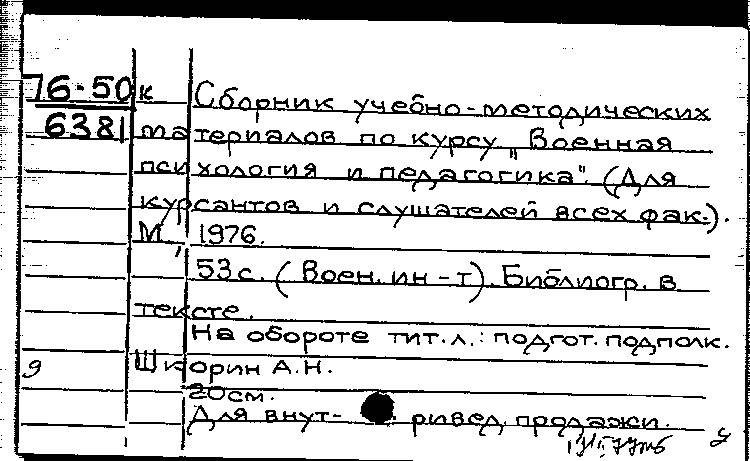 76-50к Сборник учебно-методических
6381 материалов по курсу „Военная
психология и педагогика". (Для
курсантов и слушателей всех фак.).
М., 1976.
53 с. (Воен. ин-т). Библиогр. в
тексте.
На обороте тит. л.: подгот. подполк.
9 Шкорин А.Н.
20см.
Для внут- ривед. продажи.